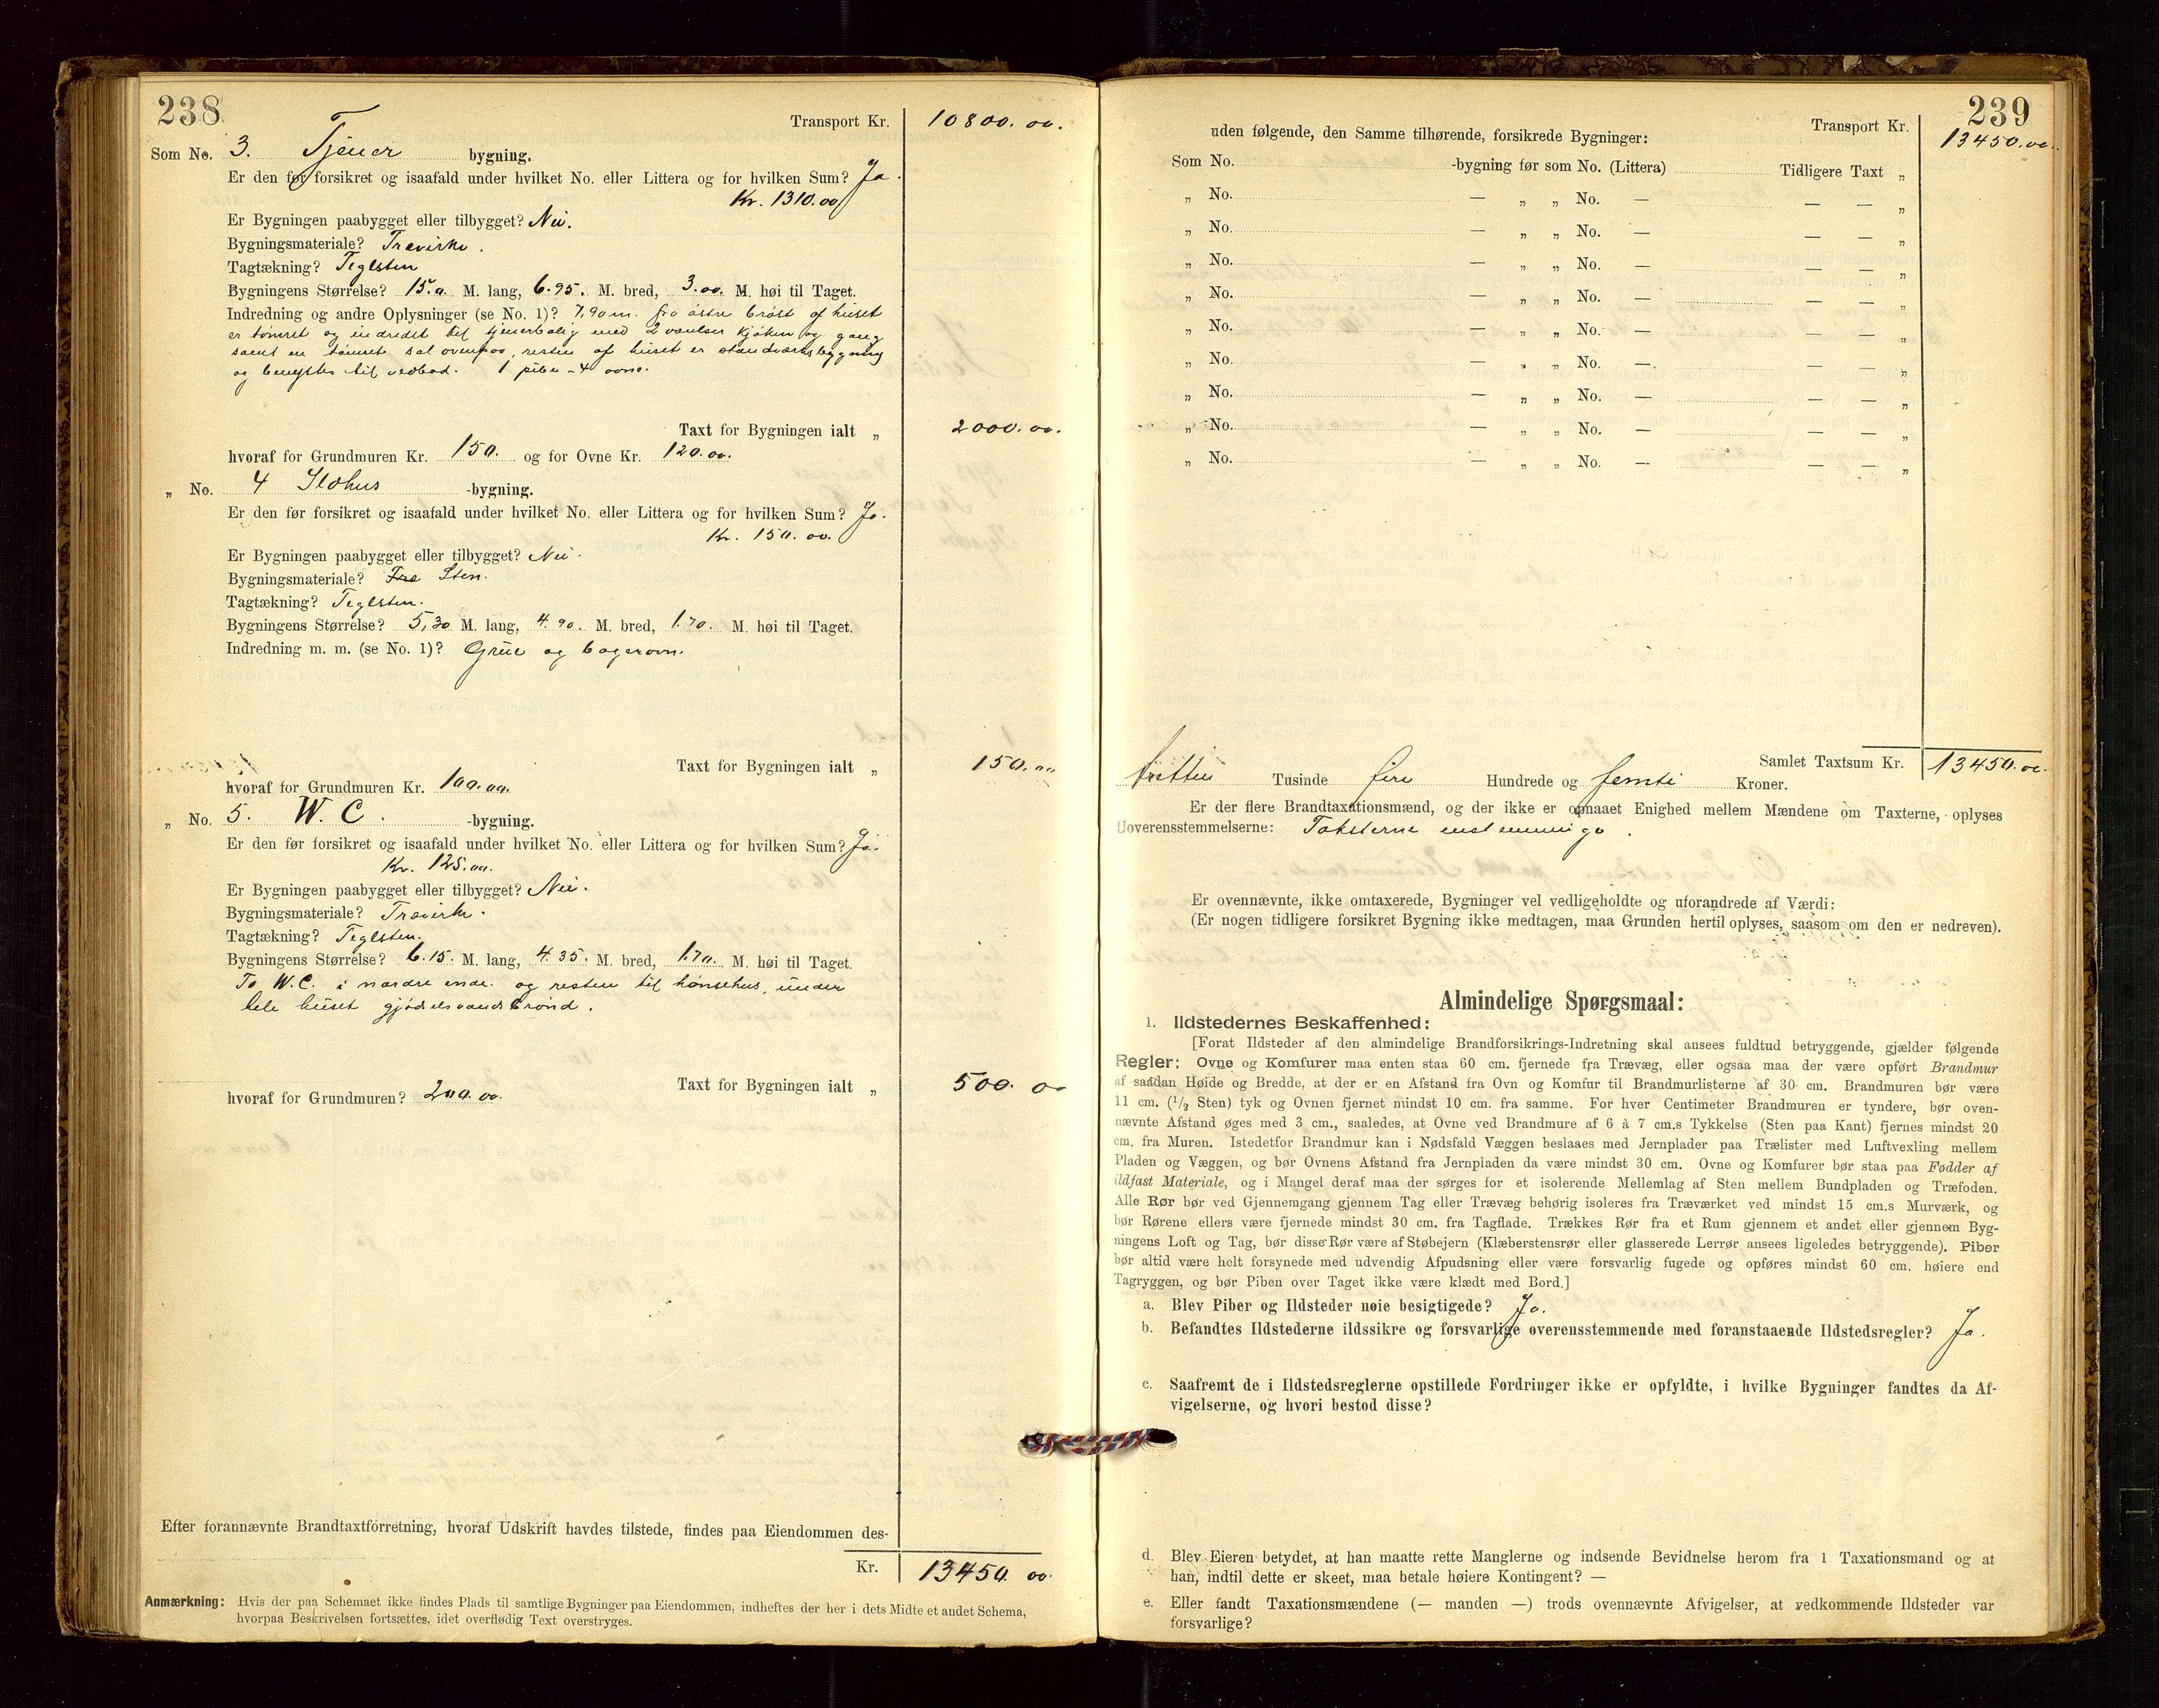 238
Transport Kr. 10800.00.
Som No. 3. Tjener bygning.
Er den før forsikret og isaafald under hvilket No. eller Littera og for hvilken Sum? Ja.
Kr. 1310.00
Er Bygningen paabygget eller tilbygget? Nei.
Bygningsmateriale? Trævirke.
Tagtækning? Teglsten
Bygningens Størrelse? 15.0 M. lang, 6.95. M. bred, 3.00. M. høi til Taget.
Indredning og andre Oplysninger (se No. 1)? 7,90 m. fra østre brøst af huset
er tømret og indredet til tjenerbolig med 2 værelser kjøken og gang
samt en tømret sal ovenpaa, resten af huset er standværksbygning
og benyttes til vedbod. 1 pibe - 4 ovne.
Taxt for Bygningen ialt „ 2000.00.
hvoraf for Grundmuren Kr. 150. og for Ovne Kr. 120.00.
„ No. 4 Ildhus -bygning.
Er den før forsikret og isaafald under hvilket No. eller Littera og for hvilken Sum? Ja.
Kr. 150.00.
Er Bygningen paabygget eller tilbygget? Nei.
Bygningsmateriale? Træ Sten.
Tagtækning? Teglsten.
Bygningens Størrelse? 5,30 M. lang, 4.90. M. bred, 1.70. M. høi til Taget.
Indredning m. m. (se No. 1)? Grue og bagerovn.
Taxt for Bygningen ialt „ 150.00
hvoraf for Grundmuren Kr. 100.00.
„ No. 5. W. C. -bygning.
Er den før forsikret og isaafald under hvilket No. eller Littera og for hvilken Sum? Ja.
Kr. 125.00.
Er Bygningen paabygget eller tilbygget? Nei.
Bygningsmateriale? Trævirke.
Tagtækning? Teglsten.
Bygningens Størrelse? 6.15. M. lang, 4.35. M. bred, 1.70. M. høi til Taget.
To W.C. i nordre ende. og resten til hønsehus, under
hele huset gjødselvandsbrønd.
Taxt for Bygningen ialt „ 500.00
hvoraf for Grundmuren? 200.00.
Efter forannævnte Brandtaxtforretning, hvoraf Udskrift havdes tilstede, findes paa Eiendommen des-
Kr. 13450.00.
Anmærkning: Hvis der paa Schemaet ikke findes Plads til samtlige Bygninger paa Eiendommen, indheftes der her i dets Midte et andet Schema,
hvorpaa Beskrivelsen fortsættes, idet overflødig Text overstryges.
239
Transport Kr. 13450.00.
uden følgende, den Samme tilhørende, forsikrede Bygninger:
Som No. -bygning før som No. (Littera) Tidligere Taxt „
„ No. — „ „ No. — — — „
„ No. — „ „ No. — — — „
„ No. — „ „ No. — — — „
„ No. — „ „ No. — — — „
„ No. — „ „ No. — — — „
„ No. — „ „ No. — — — „
„ No. — „ „ No. — — — „
„ No. — „ „ No. — — — „
„ No. — „ „ No. — — — „
Samlet Taxtsum Kr. 13450.00.
tretten Tusinde fire Hundrede og femti Kroner.
Er der flere Brandtaxationsmænd, og der ikke er opnaaet Enighed mellem Mændene om Taxterne, oplyses
Uoverensstemmelserne: Taksterne enstemmige.
Er ovennævnte, ikke omtaxerede, Bygninger vel vedligeholdte og uforandrede af Værdi:
(Er nogen tidligere forsikret Bygning ikke medtagen, maa Grunden hertil oplyses, saasom om den er nedreven).
Almindelige Spørgsmaal:
1. Ildstedernes Beskaffenhed:
[Forat Ildsteder af den almindelige Brandforsikrings-Indretning skal ansees fuldtud betryggende, gjælder følgende
Regler: Ovne og Komfurer maa enten staa 60 cm. fjernede fra Trævæg, eller ogsaa maa der være opført Brandmur
af saadan Høide og Bredde, at der er en Afstand fra Ovn og Komfur til Brandmurlisterne af 30 cm. Brandmuren bør være
11 cm. (1/2 Sten) tyk og Ovnen fjernet mindst 10 cm. fra samme. For hver Centimeter Brandmuren er tyndere, bør oven-
nævnte Afstand øges med 3 cm., saaledes, at Ovne ved Brandmure af 6 à 7 cm.s Tykkelse (Sten paa Kant) fjernes mindst 20
cm. fra Muren. Istedetfor Brandmur kan i Nødsfald Væggen beslaaes med Jernplader paa Trælister med Luftvexling mellem
Pladen og Væggen, og bør Ovnens Afstand fra Jernpladen da være mindst 30 cm. Ovne og Komfurer bør staa paa Fødder af
ildfast Materiale, og i Mangel deraf maa der sørges for et isolerende Mellemlag af Sten mellem Bundpladen og Træfoden.
Alle Rør bør ved Gjennemgang gjennem Tag eller Trævæg behørig isoleres fra Træværket ved mindst 15 cm.s Murværk, og
bør Rørene ellers være fjernede mindst 30 cm. fra Tagflade. Trækkes Rør fra et Rum gjennem et andet eller gjennem Byg-
ningens Loft og Tag, bør disse Rør være af Støbejern (Klæberstensrør eller glasserede Lerrør ansees ligeledes betryggende). Piber
bør altid være helt forsynede med udvendig Afpudsning eller være forsvarlig fugede og opføres mindst 60 cm. høiere end
Tagryggen, og bør Piben over Taget ikke være klædt med Bord.]
a. Blev Piber og Ildsteder nøie besigtigede? Ja.
b. Befandtes Ildstederne ildssikre og forsvarlige overensstemmende med foranstaaende Ildstedsregler? Ja.
c. Saafremt de i Ildstedsreglerne opstillede Fordringer ikke er opfyldte, i hvilke Bygninger fandtes da Af-
vigelserne, og hvori bestod disse?
d. Blev Eieren betydet, at han maatte rette Manglerne og indsende Bevidnelse herom fra 1 Taxationsmand og at
han, indtil dette er skeet, maa betale høiere Kontingent? —
e. Eller fandt Taxationsmændene (— manden —) trods ovennævnte Afvigelser, at vedkommende Ildsteder var
forsvarlige?